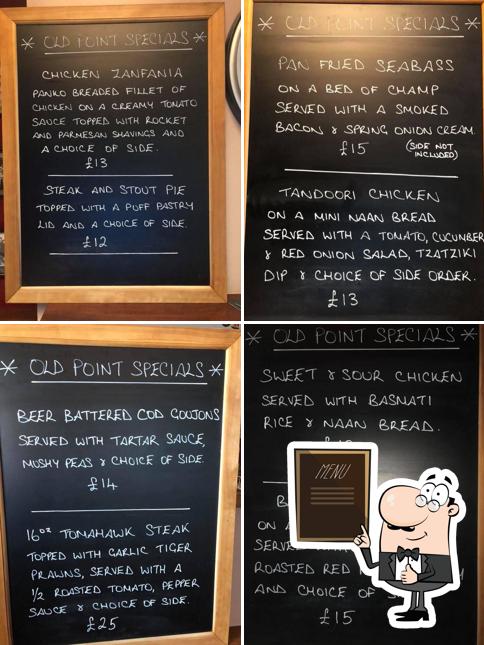 * OLD POINT SPECIALS *
CHICKEN ZANFANIA
PANKO BREADED FILLET OF
CHICKEN ON A CREAMY TOMATO
SAUCE TOPPED WITH ROCKET
AND PARMESAN SHAVINGS AND
A CHOICE OF SIDE.
£13
STEAK AND STOUT PIE
TOPPED WITH A PUFF PASTRY
LID AND A CHOICE OF SIDE.
£12
* OLD POINT SPECIALS *
PAN FRIED SEABASS
ON A BED OF CHAMP
SERVED WITH A SMOKED
BACON & SPRING ONION CREAM.
£15 (SIDE NOT
INCLUDED)
TANDOORI CHICKEN
ON A MINI NAAN BREAD
SERVED WITH A TOMATO, CUCUMBER
& RED ONION SALAD, TZATZIKI
DIP & CHOICE OF SIDE ORDER.
£13
* OLD POINT SPECIALS *
BEER BATTERED COD GOUJONS
SERVED WITH TARTAR SAUCE,
MUSHY PEAS & CHOICE OF SIDE.
£14
16oz TOMAHAWK STEAK
TOPPED WITH GARLIC TIGER
PRAWNS, SERVED WITH A
1/2 ROASTED TOMATO, PEPPER
SAUCE & CHOICE OF SIDE.
£25
* OLD POINT SPECIALS *
SWEET & SOUR CHICKEN
SERVED WITH BASMATI
RICE & NAAN BREAD.
MENU
ON
ROASTED RED
AND CHOICE OF
£15